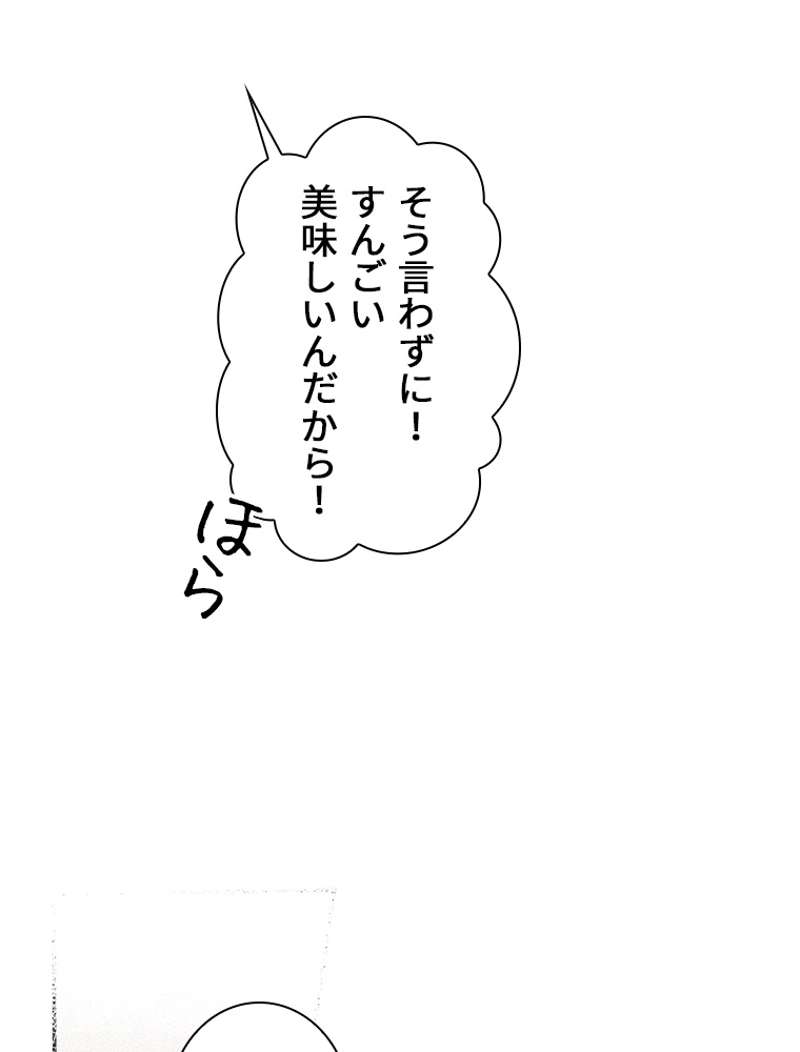 そう言わずに！
すんごい
美味しいんだから！
ほら